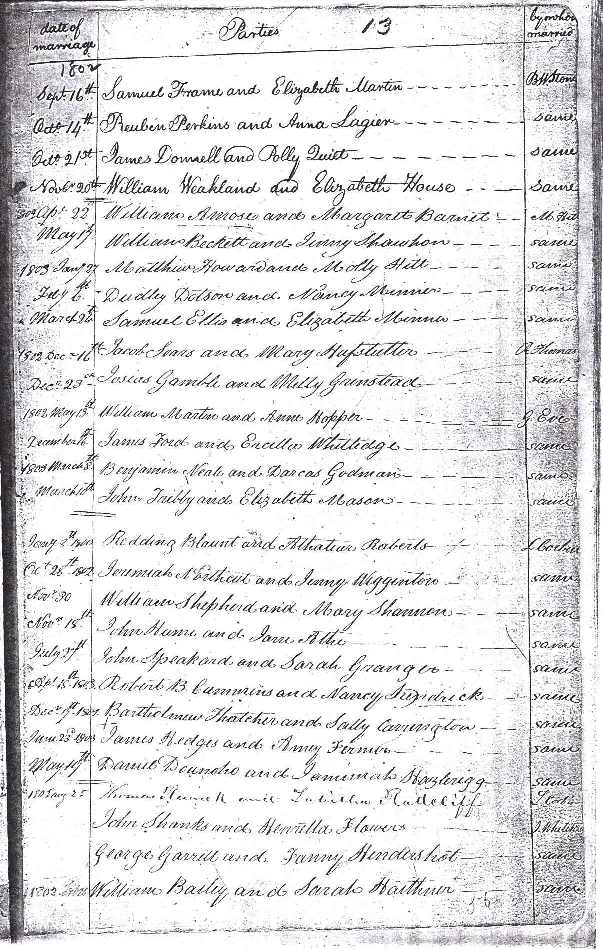 date of marriage Parties 13 by whom married
1802
Sept. 16th Samuel Frame and Elizabeth Martin B W Stone
Octo. 14th Reuben Perkins and Anna Lagier same
Octo. 21st James Donnell and Polly Quiet same
Novbr. 20th William Weakland and Elizabeth House same
Apl. 22d William Amoses and Margaret Barnet
May 17th William Beckett and Jenny Shawhon same
1803 Jany 27 Matthew Howard and Molly Hill same
Feby 6th Dudley Dotson and Nancy Minner same
March 26 Samuel Ellis and Elizabeth Minner same
1802 Decr. 16th Jacob Sears and Mary Hufstutter Thomas
Decr. 23rd Josias Gamble and Milly Grinstead same
1802 May 13th William Martin and Anne Hopper G Eve
James Ford and Ercilla Whitlidge same
1803 March 3d Benjamin Neale and Darcas Godman same
March 10th John Trebby and Elizabeth Mason same
Jany Redding Blaunt and Roberts
Oct. 28th 1802 Jeremiah Northcut and Jenny Wigginton same
Novr. 30 William Shepherd and Mary Shannon same
Novr. 18th John Hume and Jane same
July John Speakard and Sarah Granger same
Robert B Cummins and Nancy same
Decr. Bartholmew Thatcher and Sally Carrington same
June 23d 1803 James Hedges and Amey Fermer same
May 19th Daniel and Jamimah Hazlerigg same
1803 Aug 25 Thomas and Tabitha Radcliff
John Shanks and Henrietta Flowers
George Garrell and Fanny Hendershot same
1802 William Bailey and Sarah same